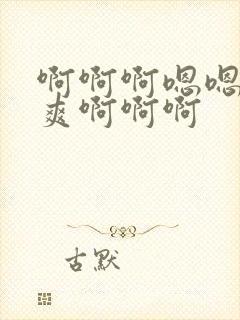 啊啊啊嗯嗯
爽啊啊啊
古默